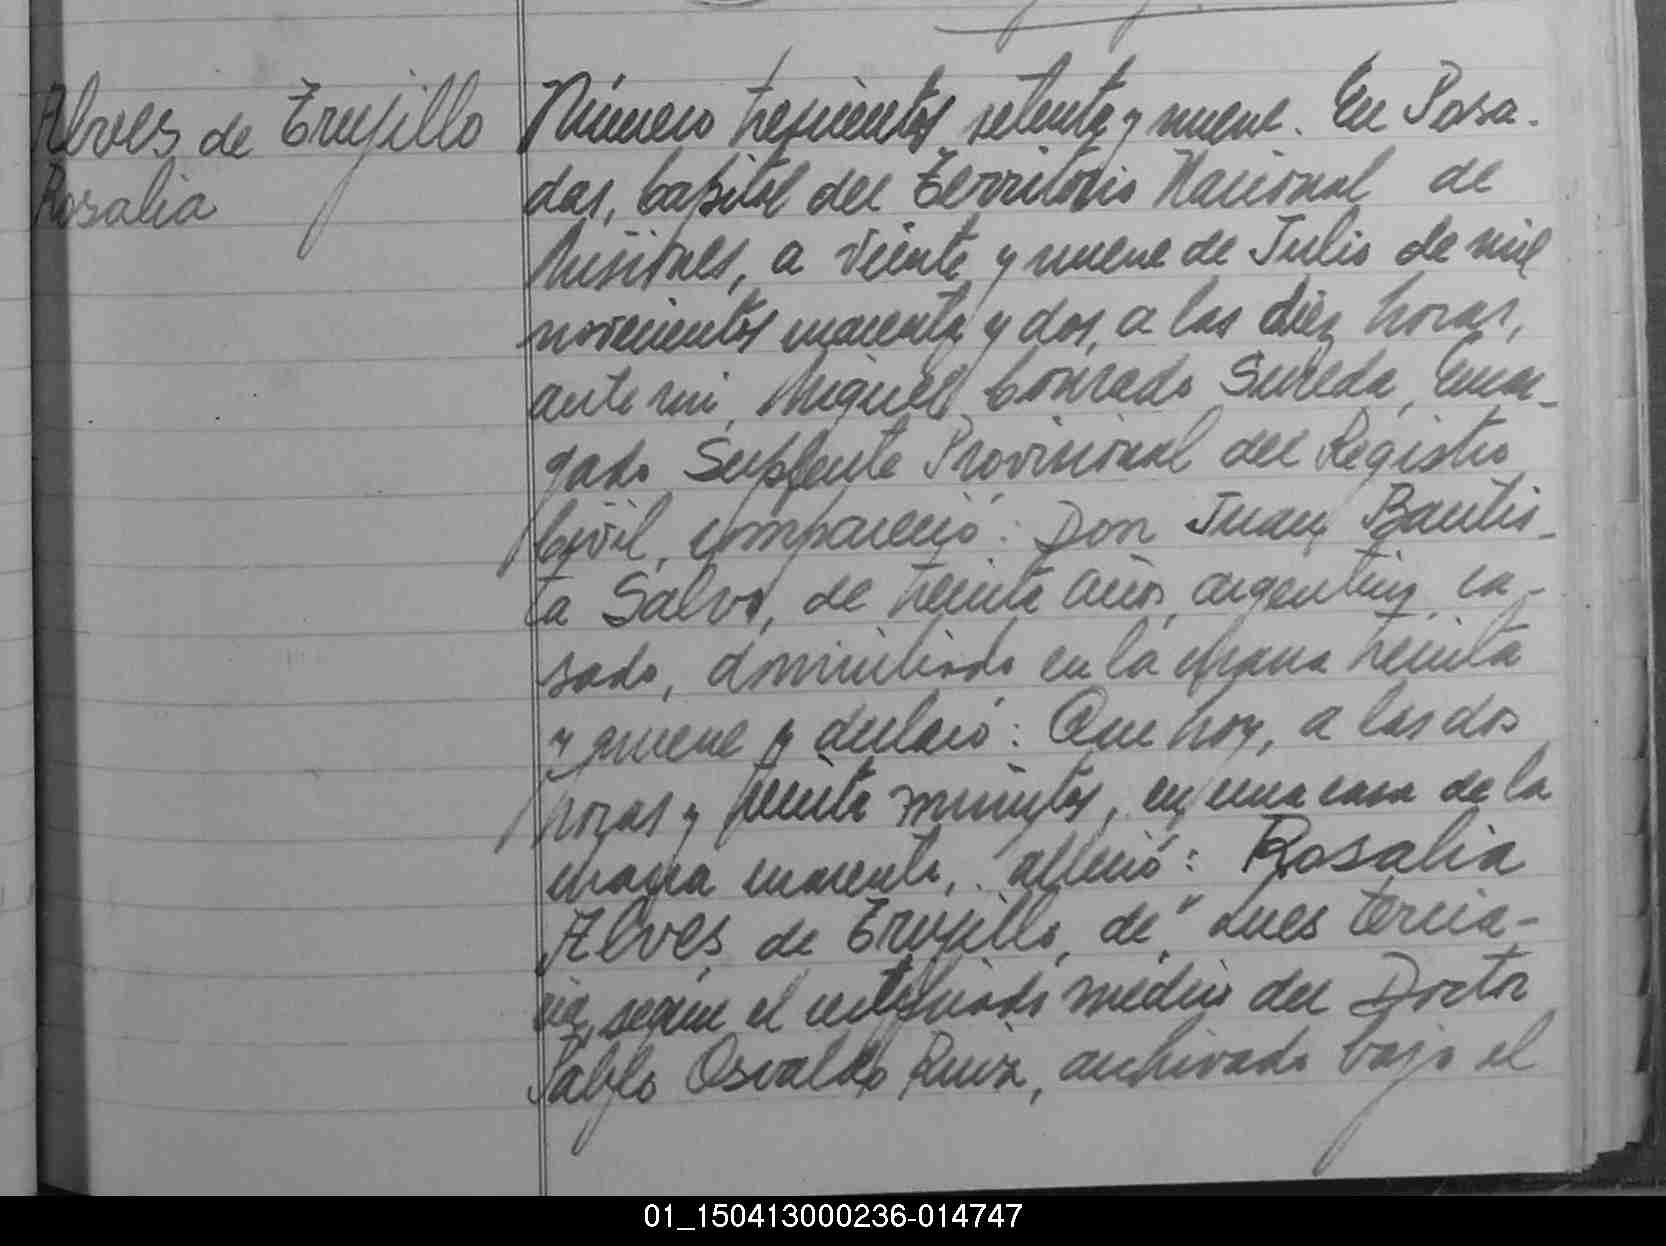 Alves de Trujillo
Rosalia
Número trescientos setenta y nueve. En Posa-
das, Capital del Territorio Nacional de
Misiones, a veinte y nueve de Julio de mil
novecientos cuarenta y dos, a las diez horas,
ante mi, Miguel Conrado Sureda, Encar-
gado Suplente Provisional del Registro
Civil, compareció: Don Juan Bautis-
ta Salvo, de treinta años, argentino, ca-
sado, domiciliado en la chacra treinta
y nueve y declaró: Que hoy, a las dos
horas y treinta minutos, en una casa de la
chacra cuarenta, falleció: Rosalia
Alves de Trujillo, de "Lues tercia-
ria, según el certificado médico del Doctor
Pablo Osvaldo Ruiz, archivado bajo el
01_150413000236-014747